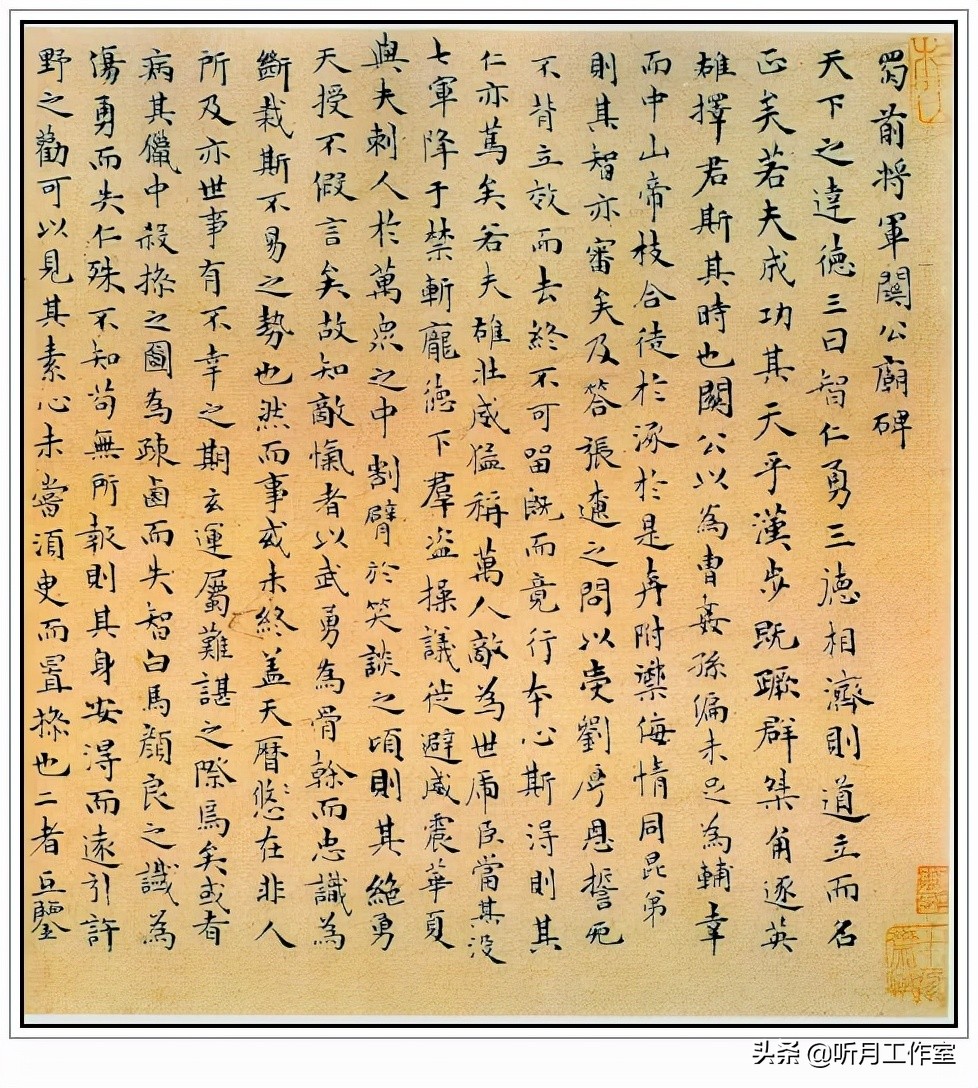 蜀前将軍關公廟碑
天下之達德三曰智仁勇三德相濟則道立而名
正矣若夫成功其天乎漢步既蹶群桀角逐英
雄擇君斯其時也關公以為曹姦孫偏未足為輔幸
而中山帝枝合徒於涿於是弁附禦侮情同昆弟
則其智亦審矣及答張遼之問以受劉厚恩誓死
不背立效而去終不可留既而竟行本心斯得則其
仁亦篤矣若夫雄壯威猛稱萬人敵為世虎臣當其没
七軍降于禁斬龐德下羣盗操議徙避威震華夏
與夫刺人於萬衆之中割臂於笑談之頃則其絶勇
天授不假言矣故知敵愾者以武勇為骨榦而忠識為
斷裁斯不易之勢也然而事或未終盖天曆悠悠在非人
所及亦世事有不幸之期玄運屬難諶之際焉矣或者
病其儠中殺操之圖為疎鹵而失智白馬顔良之識為
傷勇而失仁殊不知苟無所報則其身安得而遠引許
野之勸可以見其素心未嘗須臾而置操也二者互鑒
头条 @听月工作室